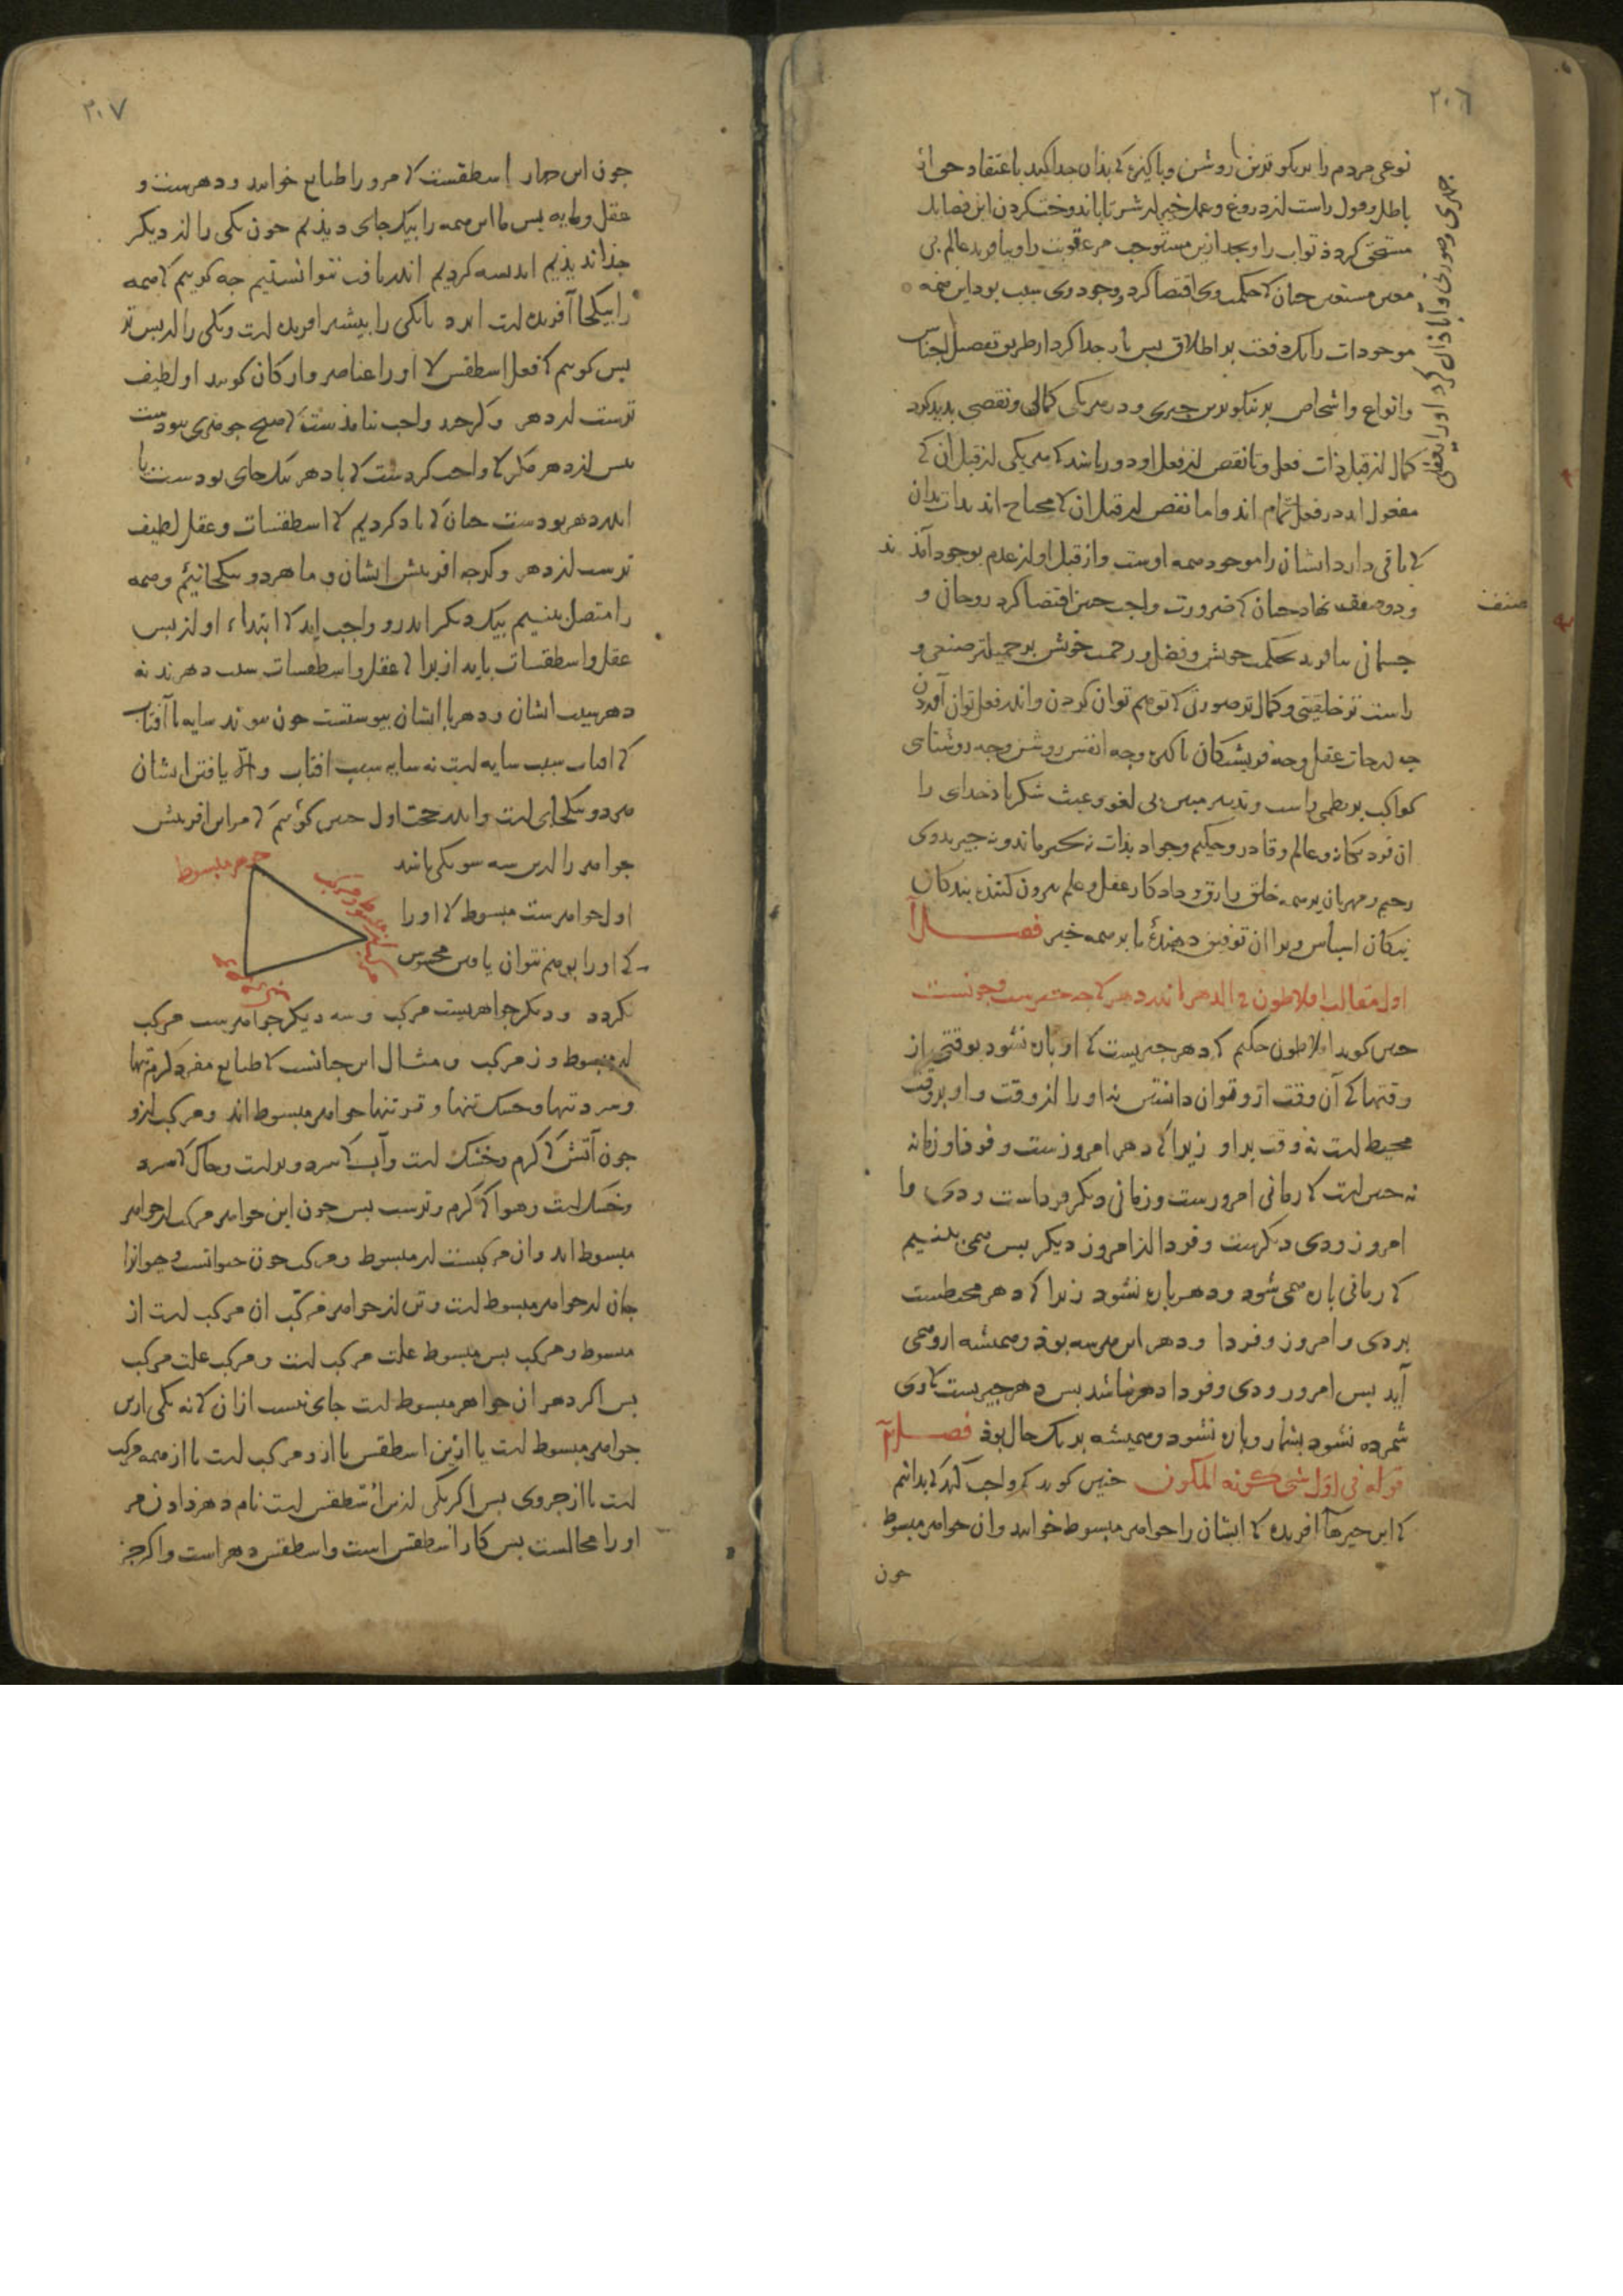 ٢٠٦
نوعی مردم را بر نیکوترین روشن و پاکیزه کی بذان جدا کند با عتقاد حق از
باطل و قول راست از دروغ و عمل خیر از شر تا باندوختن کردن این فضایل
مستحق کردذ ثواب را و بجد ازین مستوجب مر عقوبت را و بیافرید عالم بی
معین مستعین جنان کی حکمت وی اقتضا کرد و جود وی سبب بود این همه
موجودات را یک دفعت بر اطلاق بس باز جدا کرد از طریق تفصیل اجناس
و انواع و اشخاص بر نیکوترین جیزی و در هر یکی کمالی و نقصی بدید کرد
جیزی و صورتی و آبا ذان کرد او را بعقلی
کمال از قبل ذات فعل و تا نقص از فعل او دور باشد کی هر یکی از قبل آن کی
مفعول اند در فعل تمام اند و اما نقص از قبل ان کی محتاج اند بذات بدان
کی باقی دارد ایشان را موجود همه اوست و از قبل او از عدم بوجود آمذند
و دو صنف نهاد جنان کی ضرورت واجب جنین اقتضا کرد روحانی و
صنف
جسمانی بیافرید بحکمت خویش و فضل و رحمت خویش بر جمیلتر صنعی و
راست تر خلقتی و کمال تر صورتی کی توهم توان کردن و اندر فعل توان آوردن
جه درجات عقل و جه فریشتکان باکیزه و جه انفس روشن و جه روشنای
کواکب بر نظمی راست و تدبیر مبین بی لغو و عبث شکر باذ خدای را
ان فرد یکانه و عالم و قادر و حکیم و جواد بذات نه کسی ماند و نه جیز بدوی
رحیم و مهربان بر همه خلق رازق و داد کار عقل و علم بیرون کننده بندکان
نیکان اسپاس ویرا ان توفیق دهندهٔ ما بر همه خیر فصل آ
اول مقالت افلاطون فی الدهر اندر دهر کی جه جیزست و جونست
جنین کوید افلاطون حکیم کی دهر جیزیست کی او باره نشود بوقتی از
وقتها کی آن وقت ازو توان دانستن نه او را از وقت و او بر وقت
محیط است نه وقت بر او زیرا کی دهر امروزست و فردا و زمانه
نه جنین است کی زمانی امروزست و زمانی دیکر فرداست و دی و ما
امروز و دی دیکرست و فردا از امروز دیکر بس همی بینیم
کی زمانی باره همی شود و دهر باره نشود زیرا کی دهر محیطست
بر دی و امروز و فردا و دهر این هر سه بوذ و همیشه ازو همی
آید بس امروز و دی و فردا دهر نباشد بس دهر جیزیست کی وی
شمرده نشود بشمار و باره نشود و همیشه بر یک حال بوذ فصل آ
قوله فی اول شی کونه المکون جنین کوید کی واجب آید کی بدانیم
کی این جیزها آفریده کی ایشان را جواهر مبسوط خوانند و ان جواهر مبسوط
جون
٢٠٧
جون این جهار اسطقست کی مرو را طبایع خوانند و دهرست و
عقل و مایه بس ما این همه را بیک جای دیذیم جون یکی را از دیکر
جذا ندیذیم اندیسه کردیم اندر یافت نتوانستیم جه کوییم کی همه
را بیکجا آفریده است ایزد یا یکی را بیشتر آفریده است و یکی را از بس تر
بس کوییم کی فعل اسطقس کی او را عناصر و ارکان کویند او لطیف
ترست از دهر و کرجه واجب نیامذست کی هیج جوهری بوذست
بس از دهر مکر کی واجب کردست کی با دهر بیک جای بودست یا
اندر دهر بودست جنان کی یاد کردیم کی اسطقسات و عقل لطیف
ترست از دهر و کرجه آفرینش ایشان و ما هر دو بیکجا نییم و همه
را متصل بینیم بیک دیکر اندر و واجب آید کی ابتداء او از بس
عقل و اسطقسات باید از یرا کی عقل و اسطقسات سبب دهرند نه
دهر سبب ایشان و دهر با ایشان بیوستست جون بیوند سایه با آفتاب
کی آفتاب سبب سایه است نه سایه سبب آفتاب و الا یافتن ایشان
هر دو بیکجای است و اندر حجت اول جنین کوییم کی مر این آفرینش
جواهر را اندرین سه سو یکی باشد
اول جواهرست مبسوط کی او را
کی او را بوهم نتوان یافتن محسوس
جوهر مبسوط
نکردد و دیکر جواهریست مرکب و سه دیکر جواهریست مرکب
از مبسوط و ز مرکب و مثال این جنانست کی طبایع مفرد کرم تنها
و سرد تنها و خشک تنها و تر تنها جواهر مبسوط اند و مرکب ازو
جون آتش کی کرم و خشک است و آب کی سرد و تر است و خاک کی سرد
و خشک است و هوا کی کرم و ترست بس جون این جواهر مرکب از جواهر
مبسوط اند و ان مرکبست از مبسوط و مرکب جون حیوانست و حیوانرا
جان از جواهر مبسوط است و تن از جواهر مرکب ان مرکب است از
مبسوط و مرکب بس مبسوط علت مرکب است و مرکب علت مرکب
بس اکر دهر ان جواهر مبسوط است جای نیست ازان کی نه یکی ازین
جواهر مبسوط است یا ازین اسطقس یا ازو مرکب است یا از همه مرکب
است یا از جزوی بس اکر یکی ازین اسطقس است نام دهر دادن مر
او را محالست بس کار اسطقس است و اسطقس دهر است و اکر جز